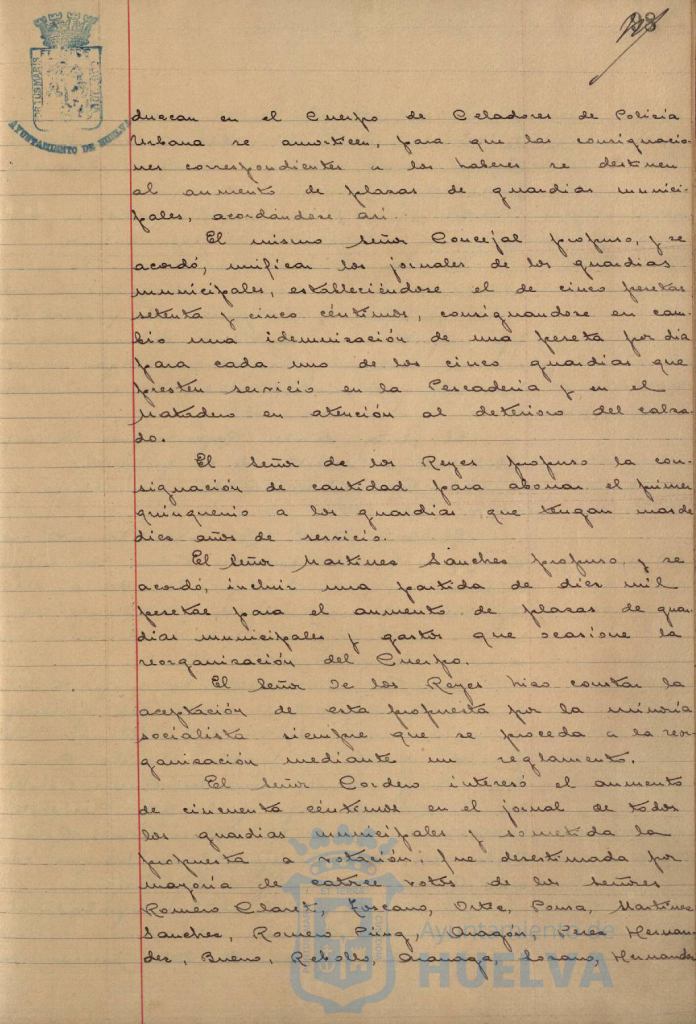 28
PORTUS MARIS
AYUNTAMIENTO DE HUELVA
duzcan en el Cuerpo de Celadores de Policía
Urbana se amorticen, para que las consignacio-
nes correspondientes a los haberes se destinen
al aumento de plazas de guardias munici-
pales, acordándose así.
El mismo Señor Concejal propuso, y se
acordó, unificar los jornales de los guardias
municipales, estableciéndose el de cinco pesetas
setenta y cinco céntimos, consignandose en cam-
bio una idemnización de una peseta por dia
para cada uno de los cinco guardias que
presten servicio en la Pescaderia y en el
Matadero en atención al deterioro del calza-
do.
El Señor de los Reyes propuso la con-
signación de cantidad para abonar el primer
quinquenio a los guardias que tengan mas de
diez años de servicio.
El Señor Martinez Sanchez propuso, y se
acordó, incluir una partida de diez mil
pesetas para el aumento de plazas de guar-
dias municipales y gastos que ocasione la
reorganización del Cuerpo.
El Señor de los Reyes hizo constar la
aceptación de esta propuesta por la minoría
socialista siempre que se proceda a la reor-
ganización mediante un reglamento.
El Señor Cordero interesó el aumento
de cincuenta céntimos en el jornal de todos
los guardias municipales y sometida la
propuesta a votación, fue desestimada por
mayoría de catorce votos de los señores
Romero Claret, Toscano, Ortiz, Ponsa, Martinez
Sanchez, Romero Puig, Aragón, Perez Hernan-
dez, Bueno, Rebollo, Aranaga, Lozano, Hernandez
Ayuntamiento de
HUELVA